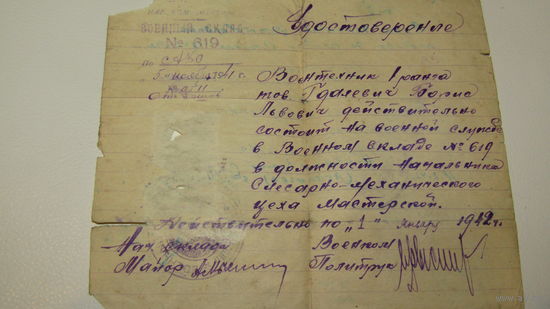 Удостоверение
ВОЕННЫЙ СКЛАД
№ 619
по
5 ноября 1941 г.
Воентехник I ранга
тов. Гдалевич Борис
Львович действительно
состоит на военной службе
в Военном складе № 619
в должности Начальника
Слесарно-механического
цеха Мастерской.
Действительно по "1" январу 1942 г.
Нач склада
Майор
Военком
Политрук